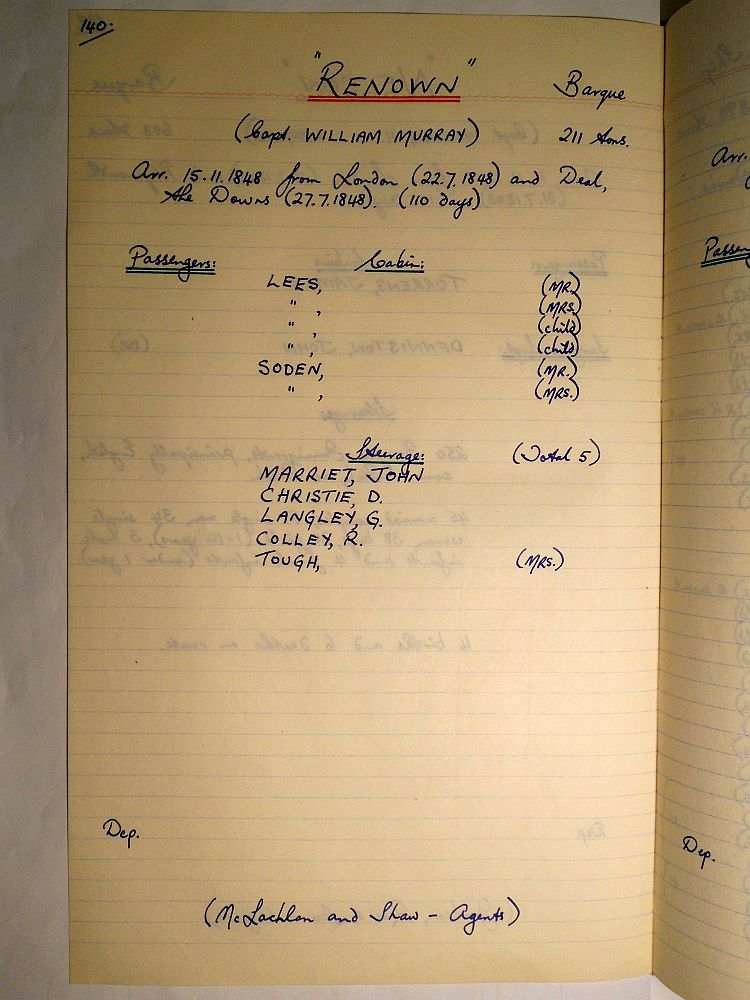 140.
"RENOWN" Barque
(Capt. WILLIAM MURRAY) 211 tons.
Arr. 15.11.1848 from London (22.7.1848) and Deal,
the Downs (27.7.1848). (110 days)
Passengers: Cabin:
LEES, (MR.)
" , (MRS.)
" , (child)
" , (child)
SODEN, (MR.)
" , (MRS.)
Steerage: (Total 5)
MARRIET, JOHN
CHRISTIE, D.
LANGLEY, G.
COLLEY, R.
TOUGH, (MRS.)
Dep.
(McLachlan and Shaw - Agents)
Arr.
Dep.